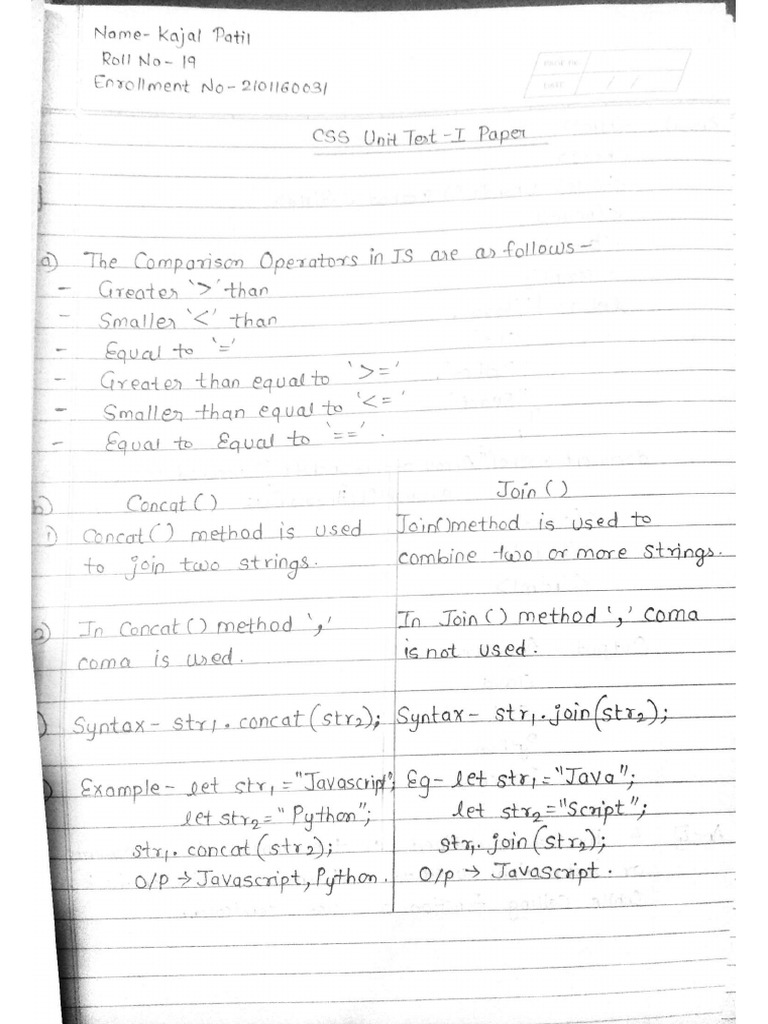 Name- Kajal Patil
Roll No- 19
Enrollment No- 2101160031
PAGE No.
DATE / /
CSS Unit Test - I Paper
a) The Comparison Operators in JS are as follows -
- Greater '>' than
- Smaller '<' than
- Equal to '='
- Greater than equal to '>='
- Smaller than equal to '<='
- Equal to Equal to '=='.
b) Concat () Join ()
1) Concat () method is used Join() method is used to
to join two strings. combine two or more strings.
2) In Concat () method ',' In Join () method ',' coma
coma is used. is not used.
) Syntax - str1.concat(str2); Syntax - str1.join(str2);
) Example - let str1 = "Javascript"; Eg- let str1 = "Java";
let str2 = "Python"; let str2 = "Script";
str1.concat(str2); str1.join(str2);
O/p → Javascript, Python. O/p → Javascript.